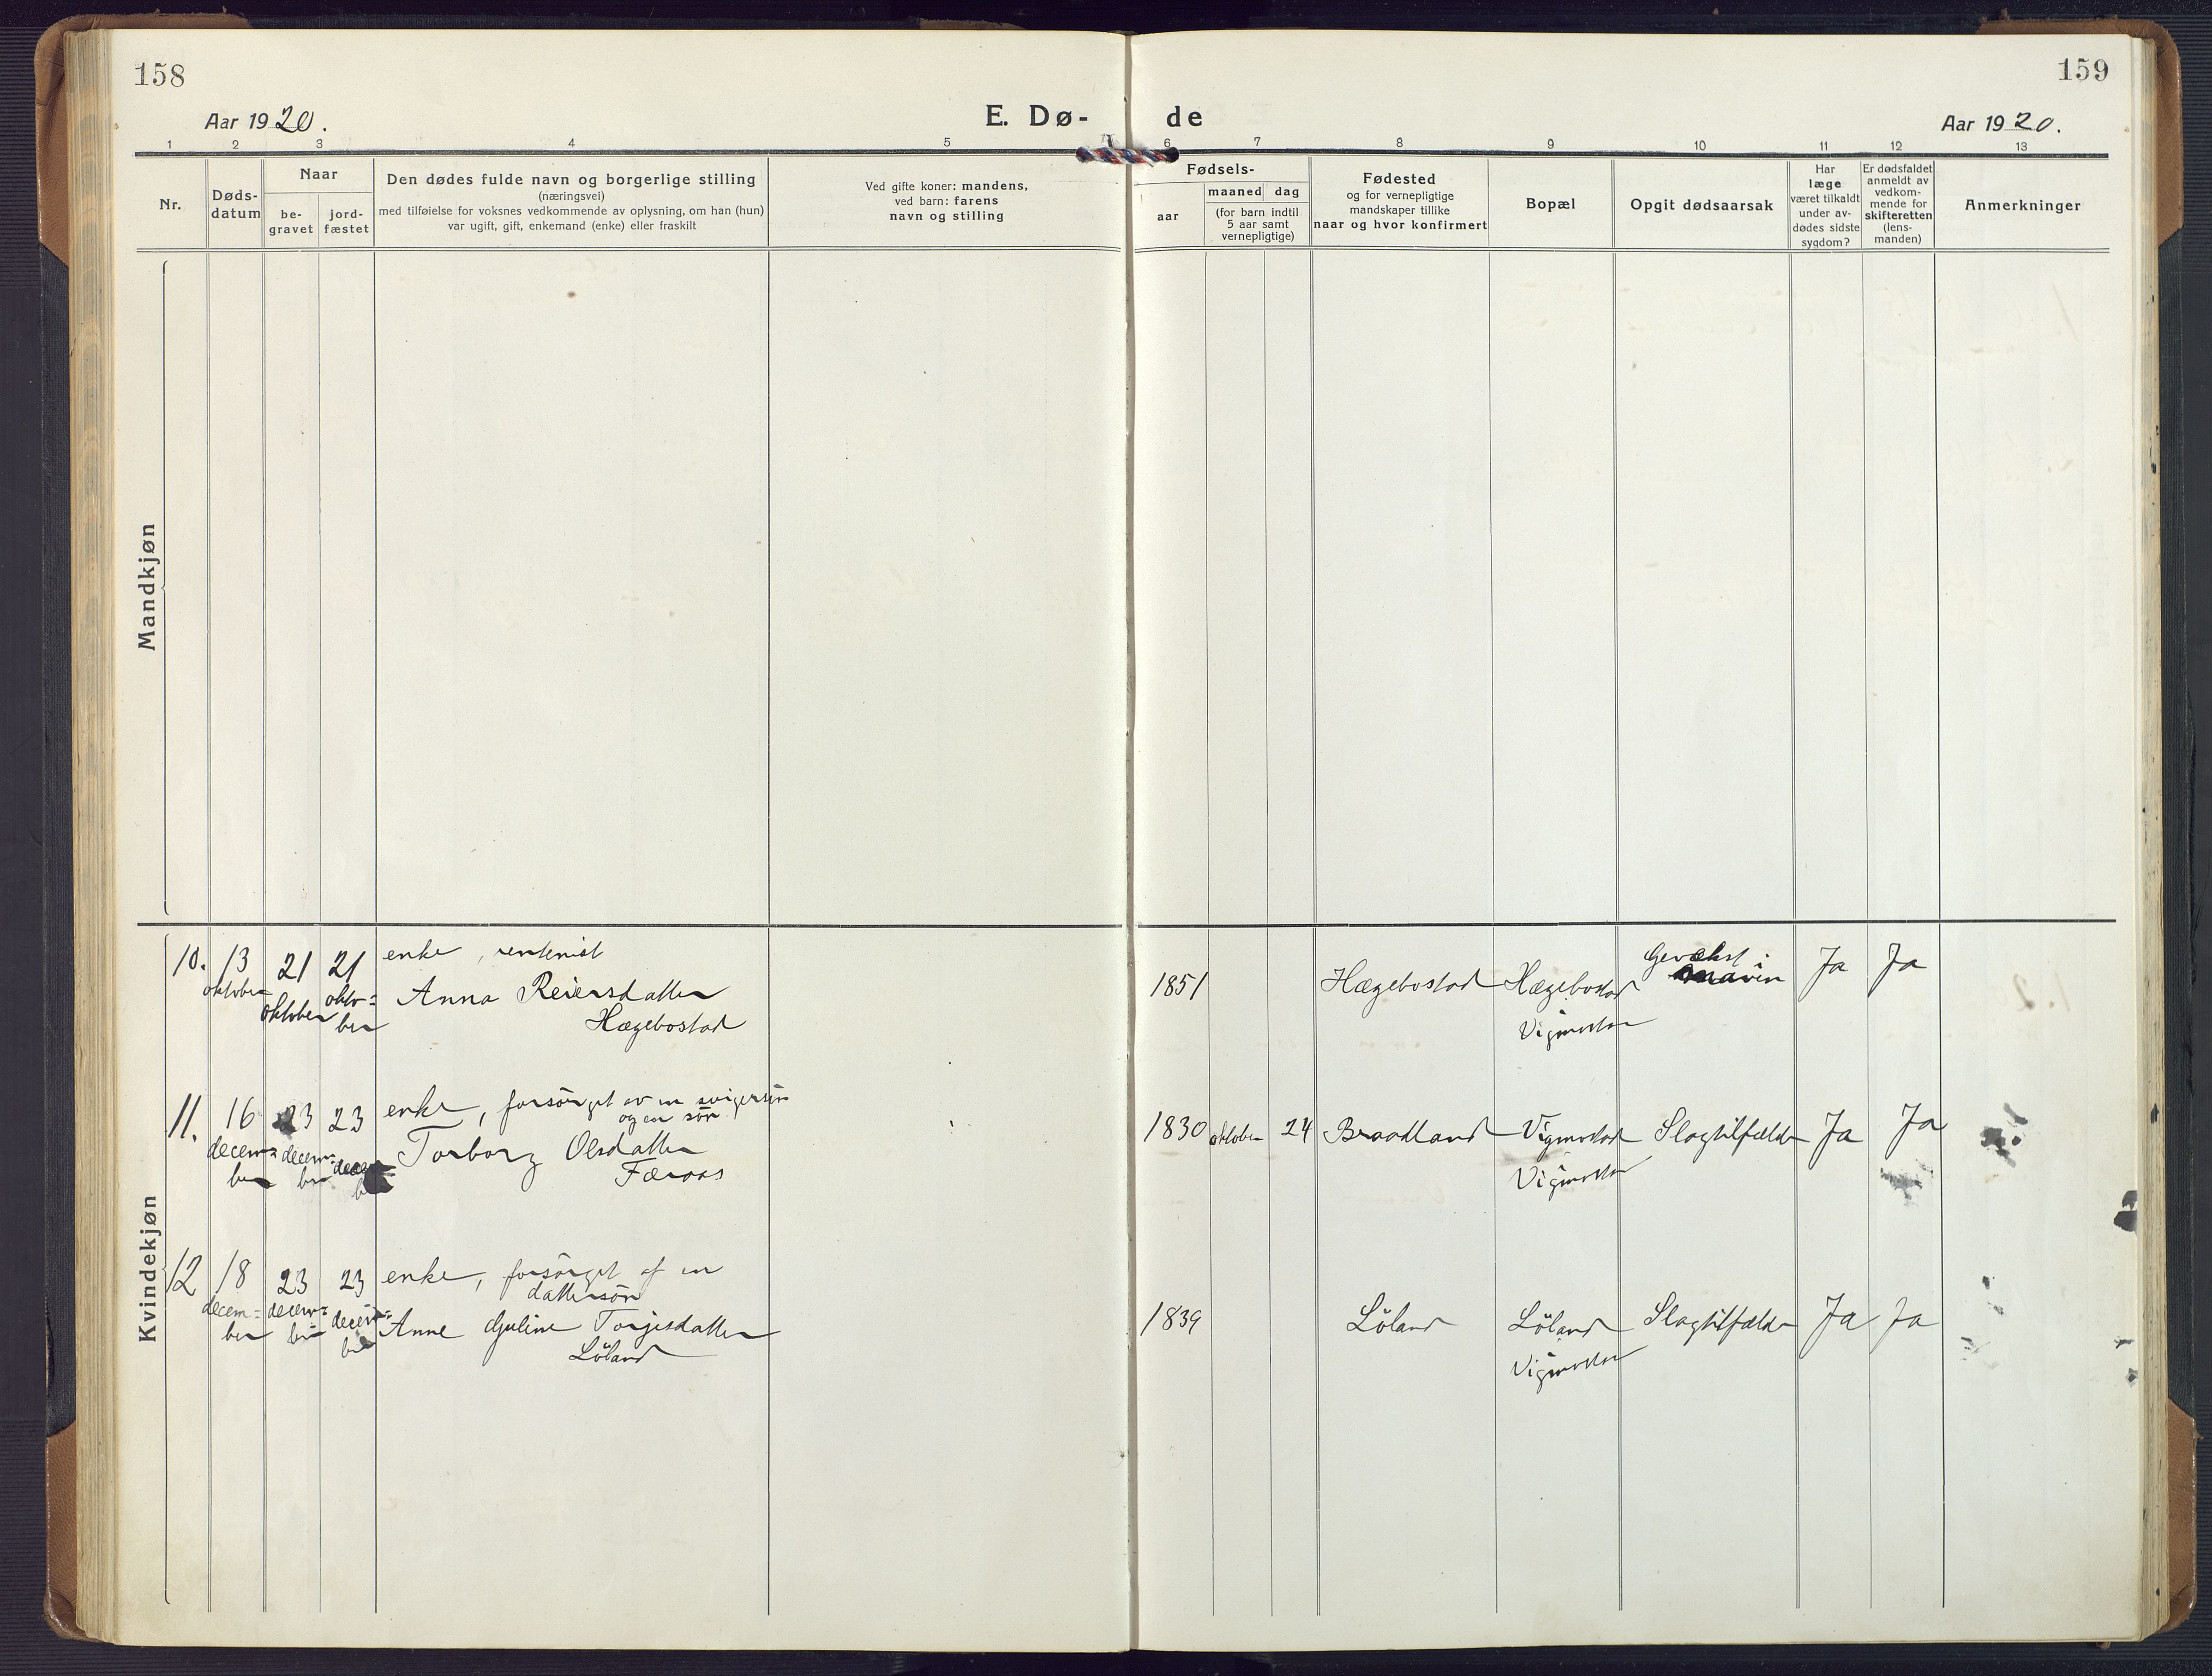 158
159
Aar 1920.
E. Dø-
de
Aar 1920.
1 2 3 4 5 6 7 8 9 10 11 12 13
Nr.
Døds-
datum
Naar
be-
gravet
jord-
fæstet
Den dødes fulde navn og borgerlige stilling
(næringsvei)
med tilføielse for voksnes vedkommende av oplysning, om han (hun)
var ugift, gift, enkemand (enke) eller fraskilt
Ved gifte koner: mandens,
ved barn: farens
navn og stilling
Fødsels-
aar
maaned
dag
(for barn indtil
5 aar samt
vernepligtige)
Fødested
og for vernepligtige
mandskaper tillike
naar og hvor konfirmert
Bopæl
Opgit dødsaarsak
Har
læge
været tilkaldt
under av-
dødes sidste
sygdom?
Er dødsfaldet
anmeldt av
vedkom-
mende for
skifteretten
(lens-
manden)
Anmerkninger
Mandkjøn
Kvindekjøn
10.
13
oktober
21
oktober
21
okto=
ber
enke, rentenist
Anna Reiersdatter
Hægebostad
1851
Hægebostad
Hægebostad
Vigmostad
Gevækst i
maven
Ja
Ja
11.
16
decem=
ber
23
decem=
ber
23
decem=
be
enke, forsörget av en svigersön
og en sön
Torborg Olsdatter
Færaas
1830
oktober
24
Braadland
Vigmostad
Vigmostad
Slagtilfælde
Ja
Ja
12
18
decem=
ber
23
decem=
ber
23
decem=
ber
enke, forsörget af en
dattersön
Anne Guline Torjesdatter
Löland
1839
Löland
Löland
Vigmostad
Slagtilfælde
Ja
Ja